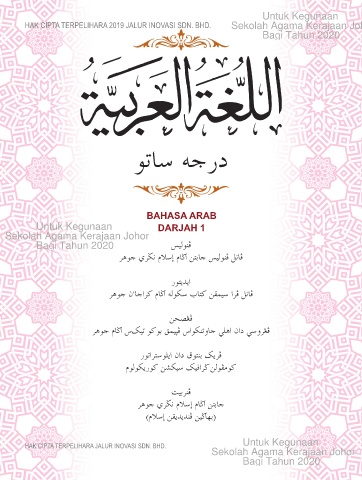 HAK CIPTA TERPELIHARA 2019 JALUR INOVASI SDN. BHD.
Untuk Kegunaan
Sekolah Agama Kerajaan Johor
Bagi Tahun 2020
اللُّغَةُ الْعَرَبِيَّةُ
درجه ساتو
BAHASA ARAB
DARJAH 1
Untuk Kegunaan
Sekolah Agama Kerajaan Johor
Bagi Tahun 2020
ڤنوليس
ڤانل ڤنوليس جابتن اݢام إسلام نݢري جوهر
ايديتور
ڤانل ڤرا سيمقن كتاب سكوله اݢام كراجاءن جوهر
ڤڠصحن
ڤڠروسي دان اهلي جاوتنكواس ڤڽيمق بوكو تيک٢س اݢام جوهر
ڤريک بنتوق دان ايلوستراتور
كومڤولن ݢرافيک سيكشن كوريكولوم
ڤنربيت
جابتن اݢام إسلام نݢري جوهر
(بهاݢين ڤنديديقن إسلام)
HAK CIPTA TERPELIHARA JALUR INOVASI SDN. BHD.
Untuk Kegunaan
Sekolah Agama Kerajaan Johor
Bagi Tahun 2020